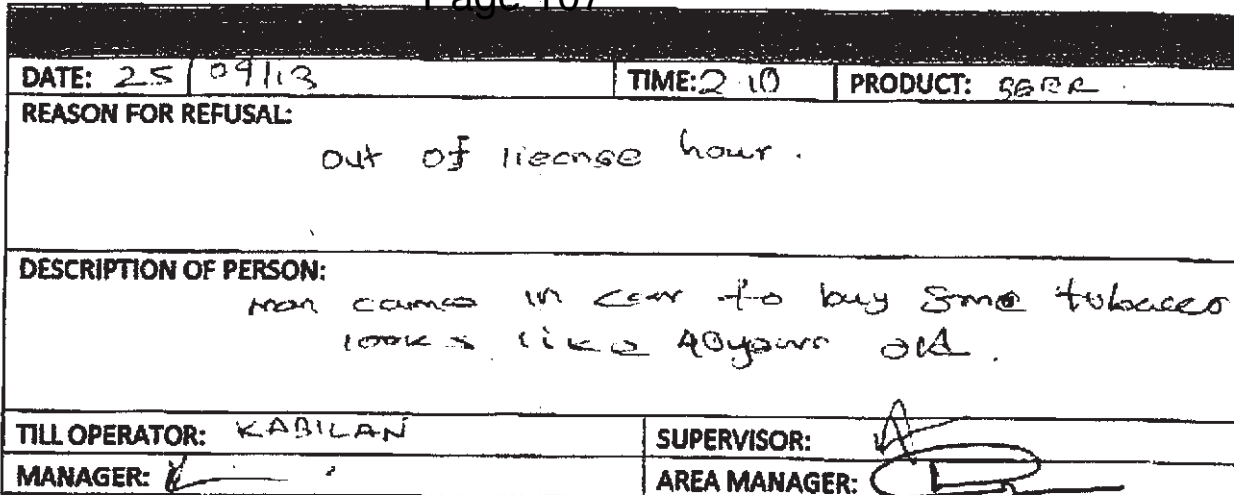 Page 167
DATE: 25/09/13 TIME: 2.10 PRODUCT: BEER
REASON FOR REFUSAL:
out of liecnse hour.
DESCRIPTION OF PERSON:
man came in car to buy some tubacco
looks like 40 years old.
TILL OPERATOR: KABILAN SUPERVISOR:
MANAGER: AREA MANAGER: